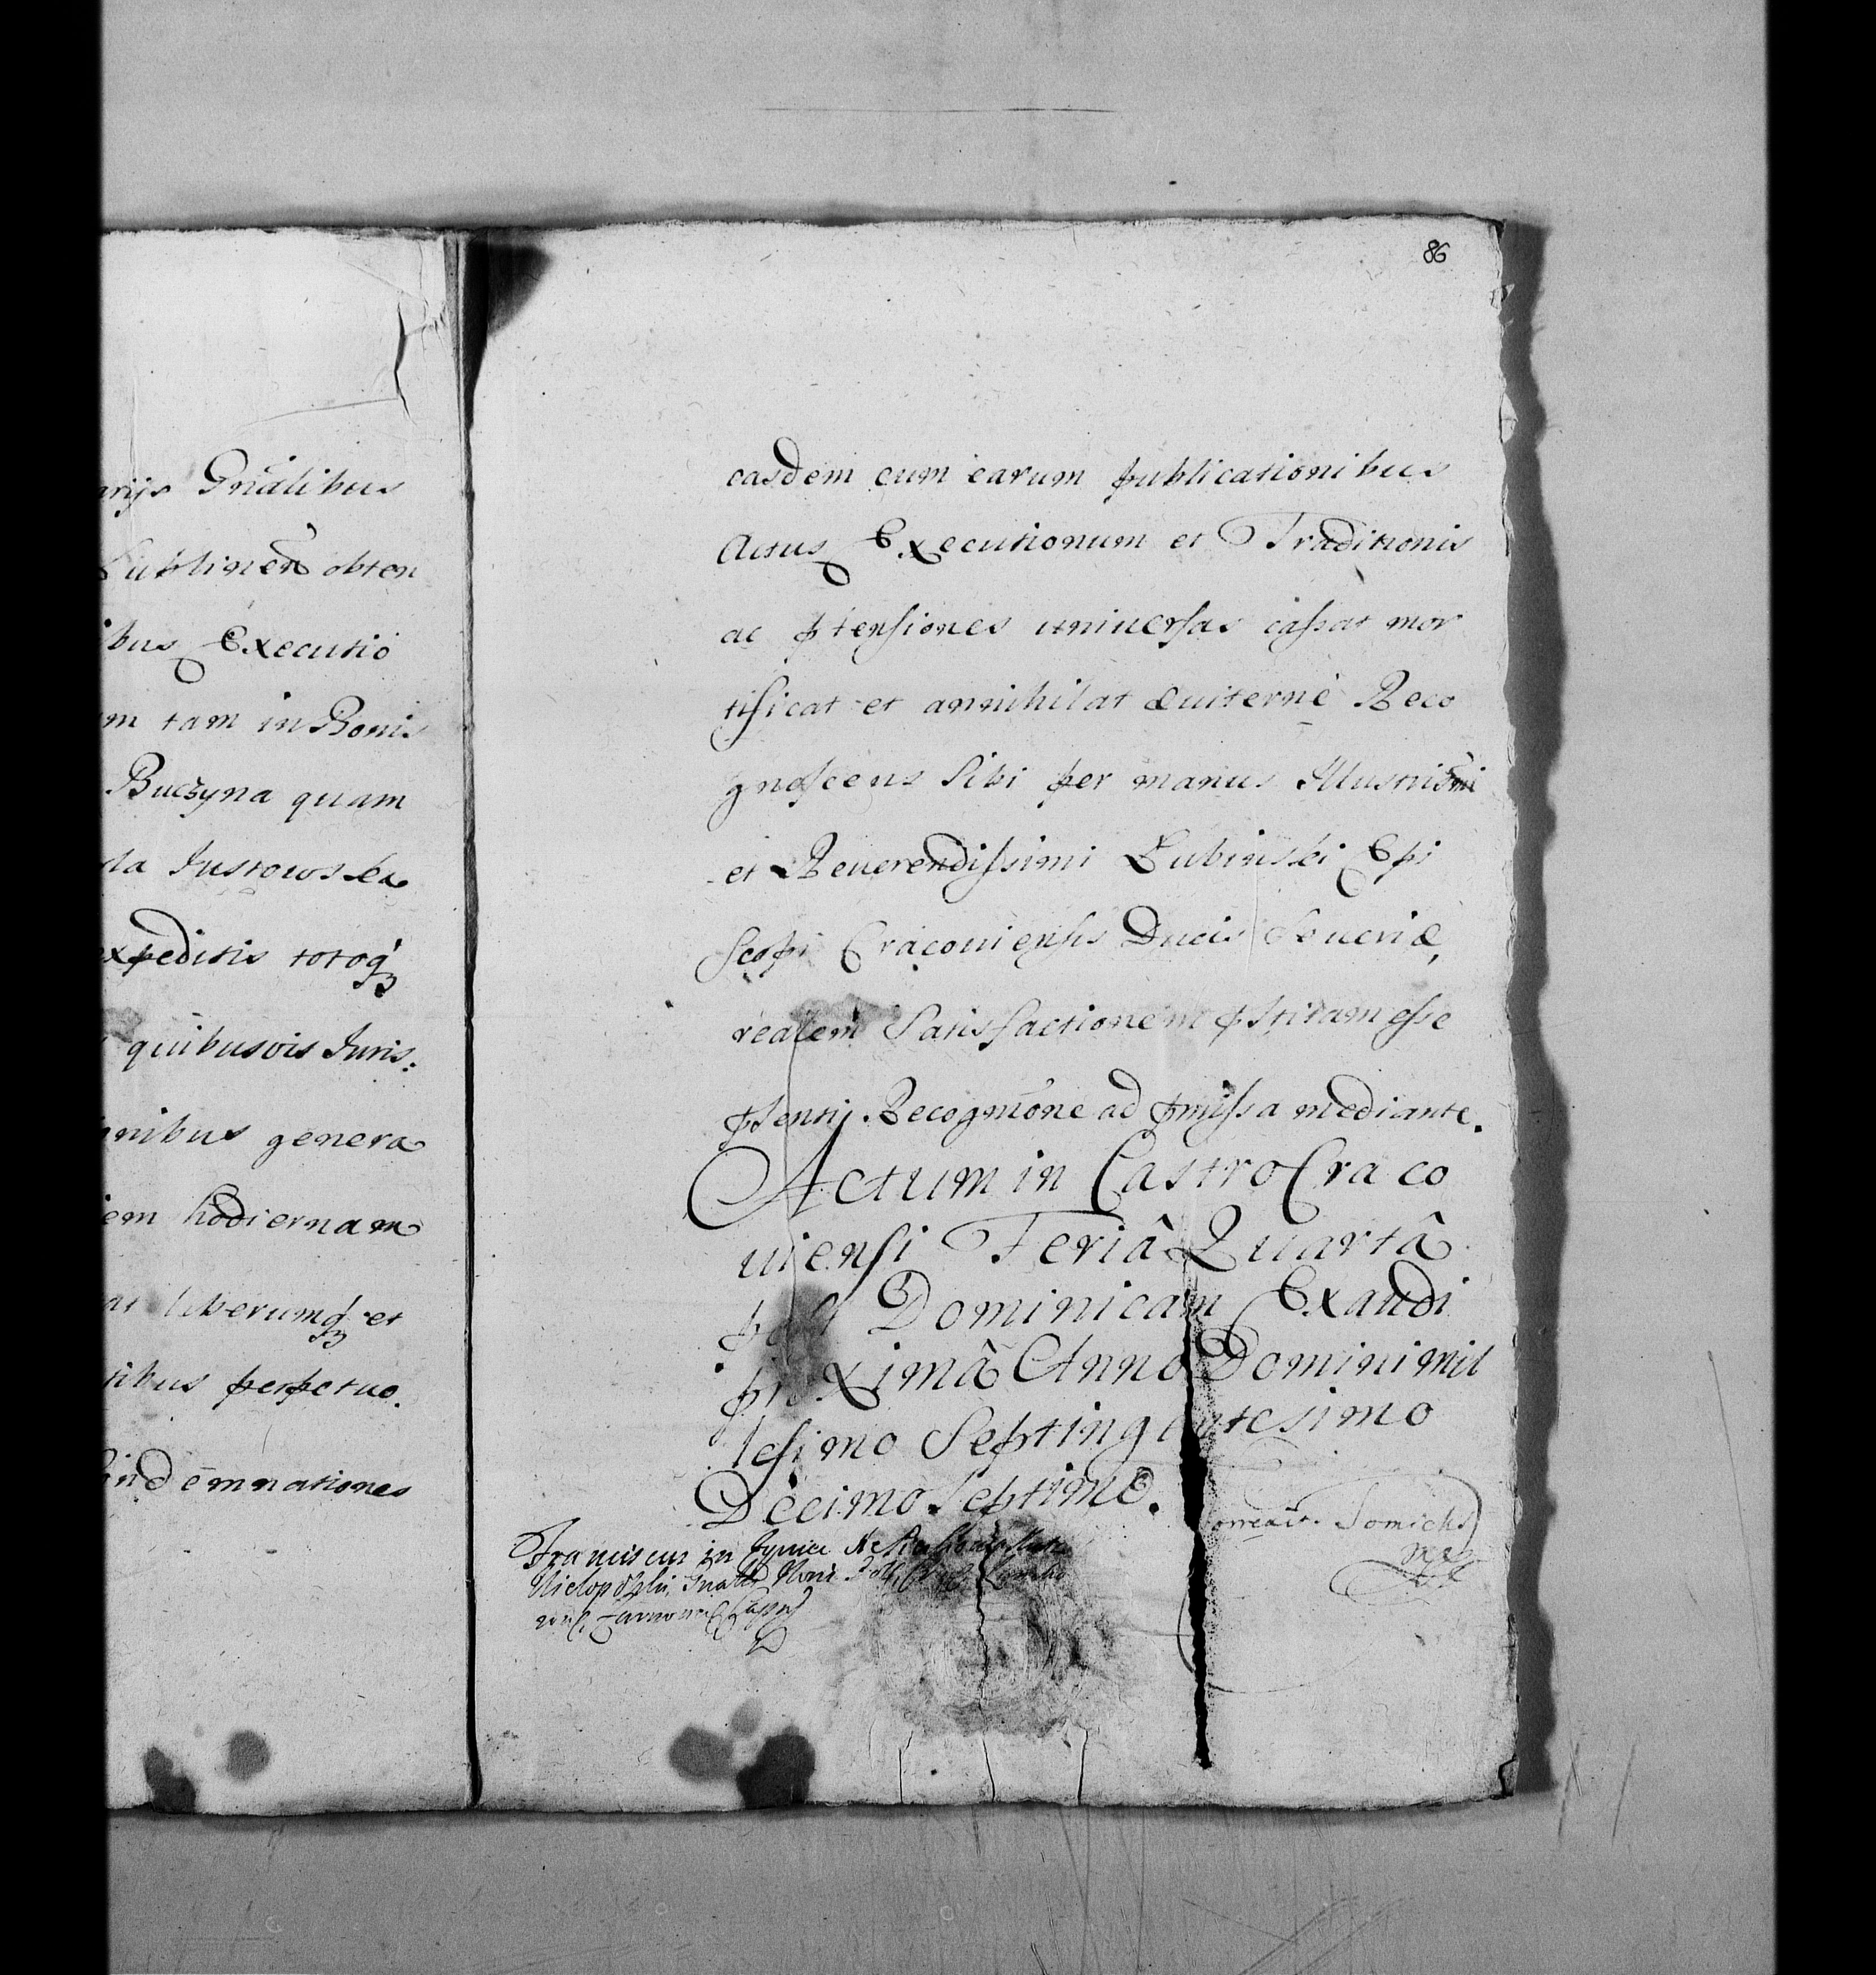 arijs Gnālibus
Lublinen obten
ibus Executio
m tam in Bonis
Buczyna quam
la Justowska
expeditis totoq
quibusvis Juris.
nibus genera
em hodiernam
at liberumq et
tibus perpetuo.
Cond emnationes
86
easdem cum earum publicationibus
Actus Executionum et Traditionis
ac ptensiones universas cassat mor
tificat et annihilat æviterne Reco
gnoscens Sibi per manus Illustrissmi
et Reverendissimi Lubinski Epi
Scopi Cracoviensis Ducis Severiæ,
realem Satisfactionem pstitam esse
psenti Recognōne ad pmissa mediante.
Actum in Castro Craco
viensi Feriâ Quartâ
post Dominicam Exaudi
proximâ Anno Domini Mil
lesimo Septingentesimo
Decimo Septimo.
Franciscus in
Correxit.